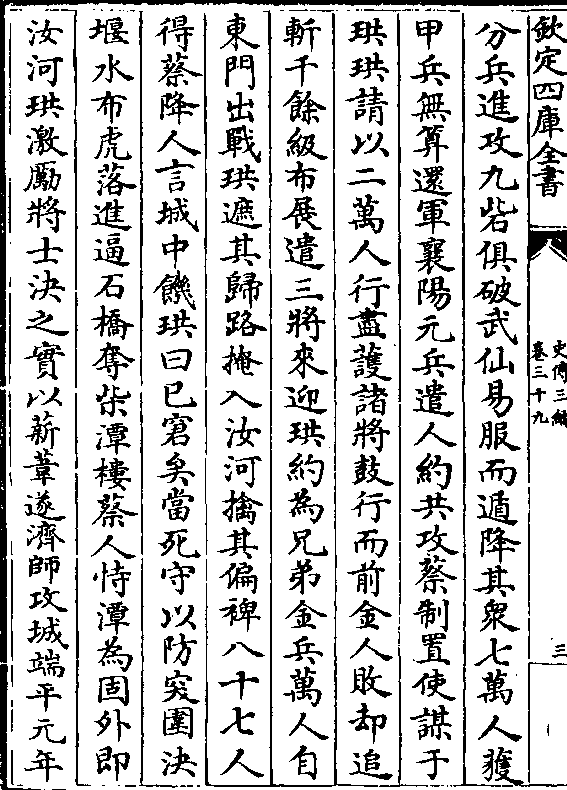 欽定四庫全書
史傳三編
卷三十九
三
分兵進攻九砦俱破武仙易服而遁降其衆七萬人獲
甲兵無算還軍襄陽元兵遣人約共攻蔡制置使謀于
珙珙請以二萬人行盡護諸將鼓行而前金人敗却追
斬千餘級布展遣三將來迎珙約為兄弟金兵萬人自
東門出戰珙遮其歸路掩入汝河擒其偏裨八十七人
得蔡降人言城中饑珙曰已窘矣當死守以防突圍決
堰水布虎落進逼石橋奪柴潭樓蔡人恃潭為固外即
汝河珙激勵將士決之實以薪葦遂濟師攻城端平元年